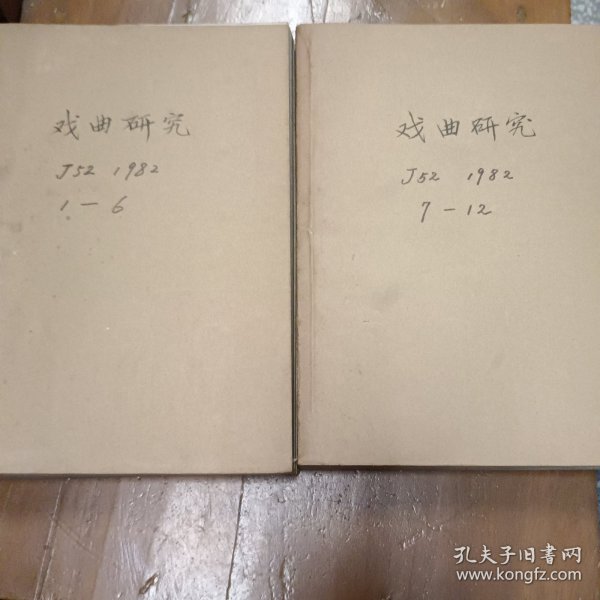 戏曲研究
J52 1982
1－6
戏曲研究
J52 1982
7－12
孔夫子旧书网
www.kongfz.com